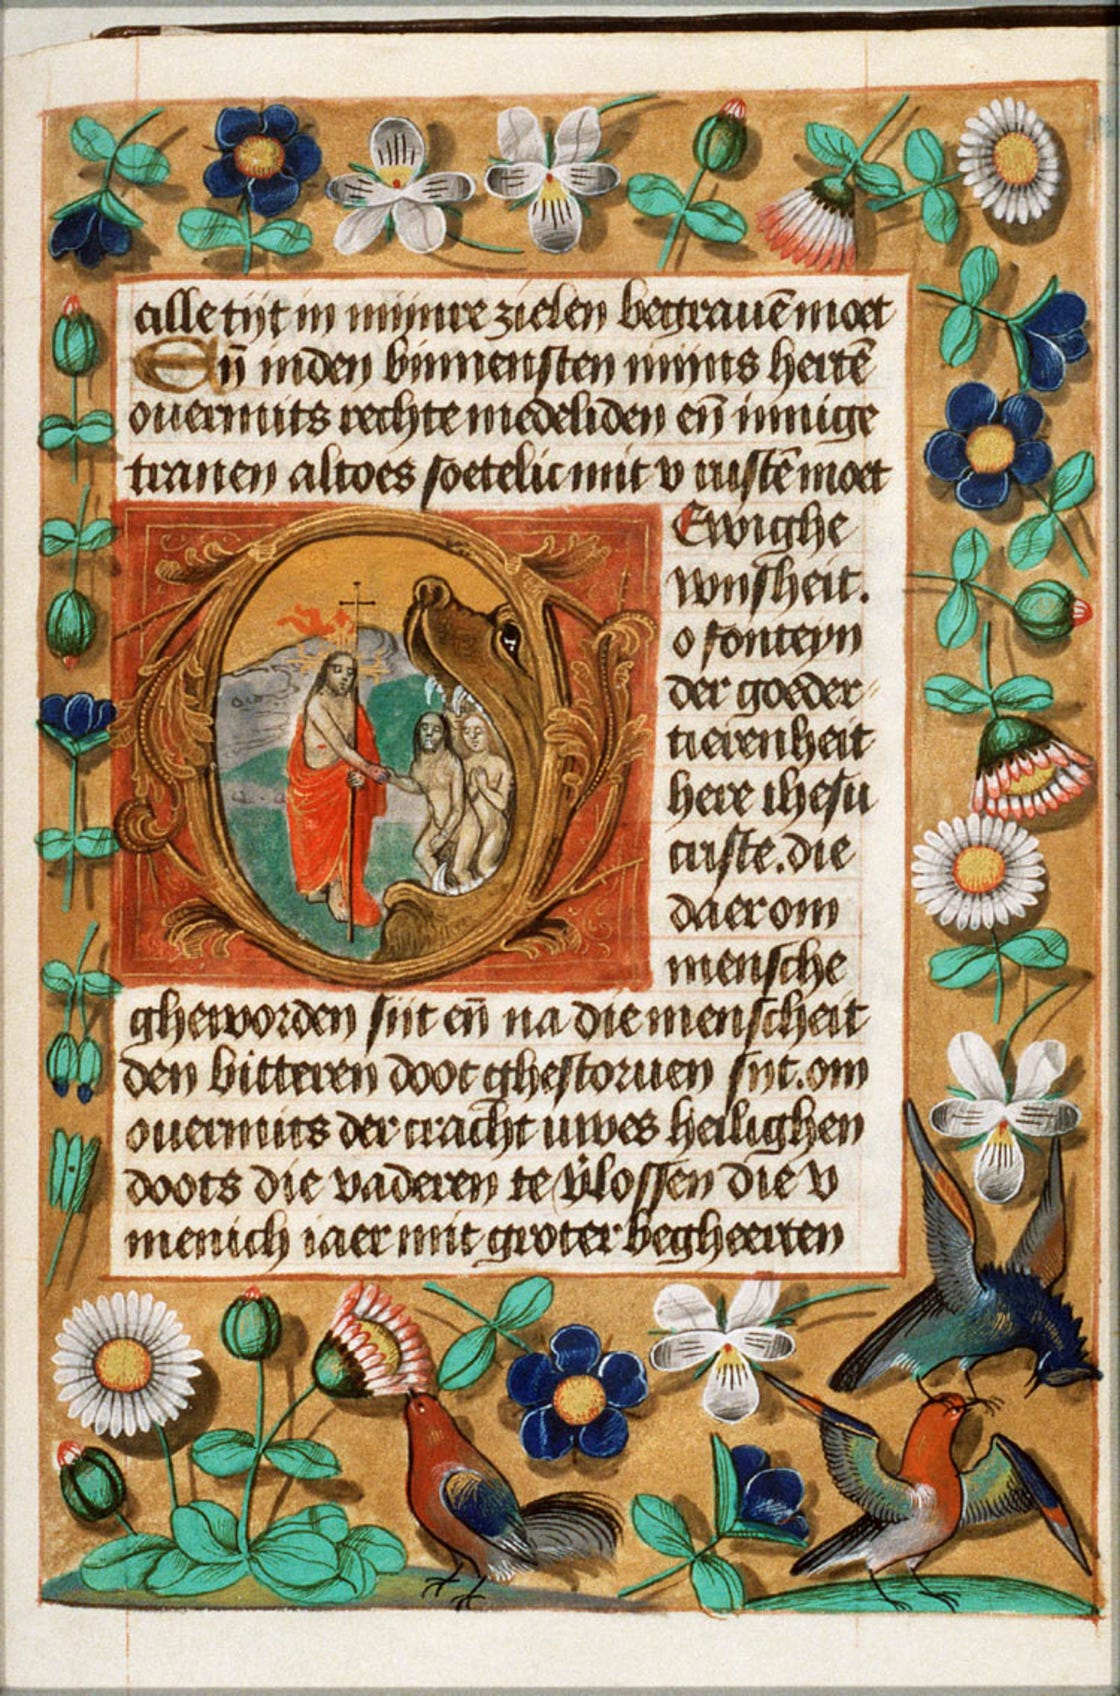 alletijt in mijnre zielen begrauē moet
Eñ inden binnensten mijns hertē
ouermits rechte medeliden eñ innige
tranen altoes soetelic mit v rustē moet
O
Ewighe
wijsheit.
o fonteyn
der goeder-
tierenheit
here ihesu
criste. die
daer om
mensche
gheworden sijt eñ na die menscheit
den bitteren doot ghestoruen sijt. om
ouermits der cracht uwes heilighen
doots die vaderen te v̄lossen die v
menich iaer mit groter begheerten